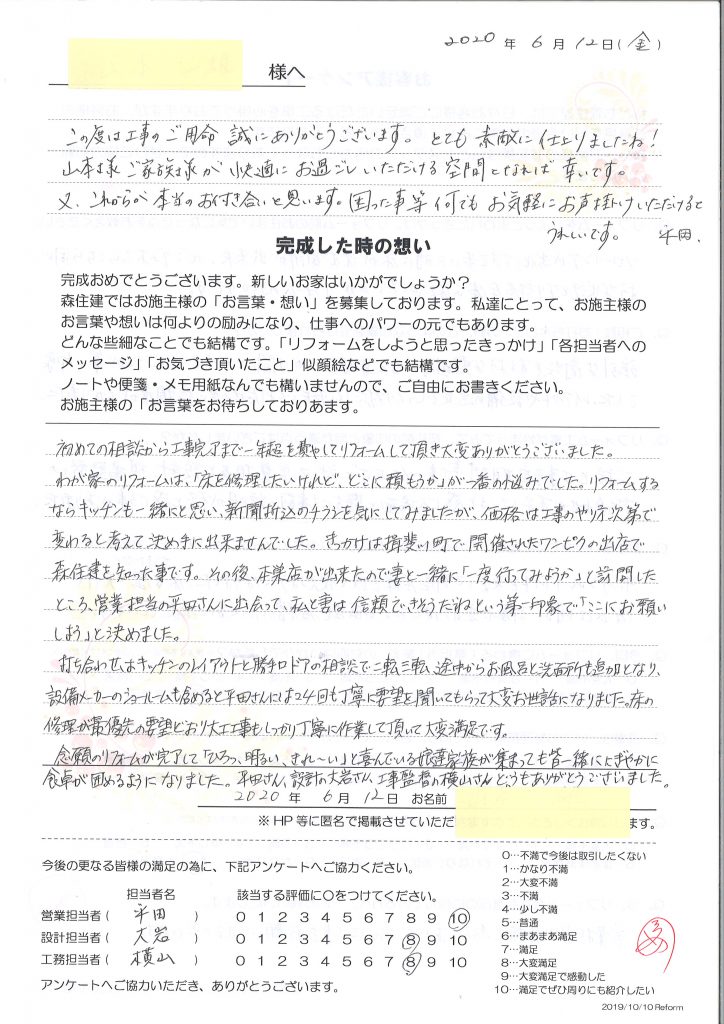 2020 年 6 月 12 日(金)
様へ
この度は工事のご用命 誠にありがとうございます。とても 素敵に仕上りましたね!
山本様ご家族様が 快適にお過ごしいただける空間となれば 幸いです。
又、これからが 本当のお付き合いと思います。困った事等何でもお気軽にお声掛けいただけると
うれしいです。 平田、
完成した時の想い
完成おめでとうございます。新しいお家はいかがでしょうか?
森住建ではお施主様の「お言葉・想い」を募集しております。私達にとって、お施主様の
お言葉や想いは何よりの励みになり、仕事へのパワーの元でもあります。
どんな些細なことでも結構です。「リフォームをしようと思ったきっかけ」「各担当者への
メッセージ」「お気づき頂いたこと」似顔絵などでも結構です。
ノートや便箋・メモ用紙なんでも構いませんので、ご自由にお書きください。
お施主様の「お言葉をお待ちしておりあます。
初めての相談から工事完了まで一年超を費やしてリフォームして頂き大変ありがとうございました。
わが家のリフォームは、「床を修理したいけれど、どこに頼もうか」が一番の悩みでした。リフォームする
ならキッチンも一緒にと思い、新聞折込のチラシを気にしてみましたが、価格は工事のやり方次第で
変わると考えて決め手に出来ませんでした。きっかけは揖斐川町で開催されたワンピクの出店で
森住建を知った事です。その後、本巣店が出来たので妻と一緒に「一度行ってみようか」と訪問した
ところ、営業担当の平田さんに出会って、私と妻は信頼できそうだねという第一印象で「ここにお願い
しよう」と決めました。
打ち合わせはキッチンのレイアウトと勝手口ドアの相談で二転三転、途中からお風呂と洗面所も追加となり、
設備メーカーのショールームも含めると平田さんには24回も丁寧に要望を聞いてもらって大変お世話になりました。床の
修理が最優先の要望どおり大工工事もしっかり丁寧に作業して頂いて大変満足です。
念願のリフォームが完了して「ひろっ、明るい、きれ〜い」と喜んでいる娘達家族が集まっても皆一緒ににぎやかに
食卓が囲めるようになりました。平田さん、設計の大岩さん、工事監督の横山さんどうもありがとうございました。
2020 年 6 月 12 日 お名前
※HP等に匿名で掲載させていただ ます。
今後の更なる皆様の満足の為に、下記アンケートへご協力ください。
担当者名 該当する評価に〇をつけてください。
営業担当者( 平田 ) 0 1 2 3 4 5 6 7 8 9 10
設計担当者( 大岩 ) 0 1 2 3 4 5 6 7 8 9 10
工務担当者( 横山 ) 0 1 2 3 4 5 6 7 8 9 10
アンケートへご協力いただき、ありがとうございます。
0…不満で今後は取引したくない
1…かなり不満
2…大変不満
3…不満
4…少し不満
5…普通
6…まあまあ満足
7…満足
8…大変満足
9…大変満足で感動した
10…満足でぜひ周りにも紹介したい
2019/10/10 Reform